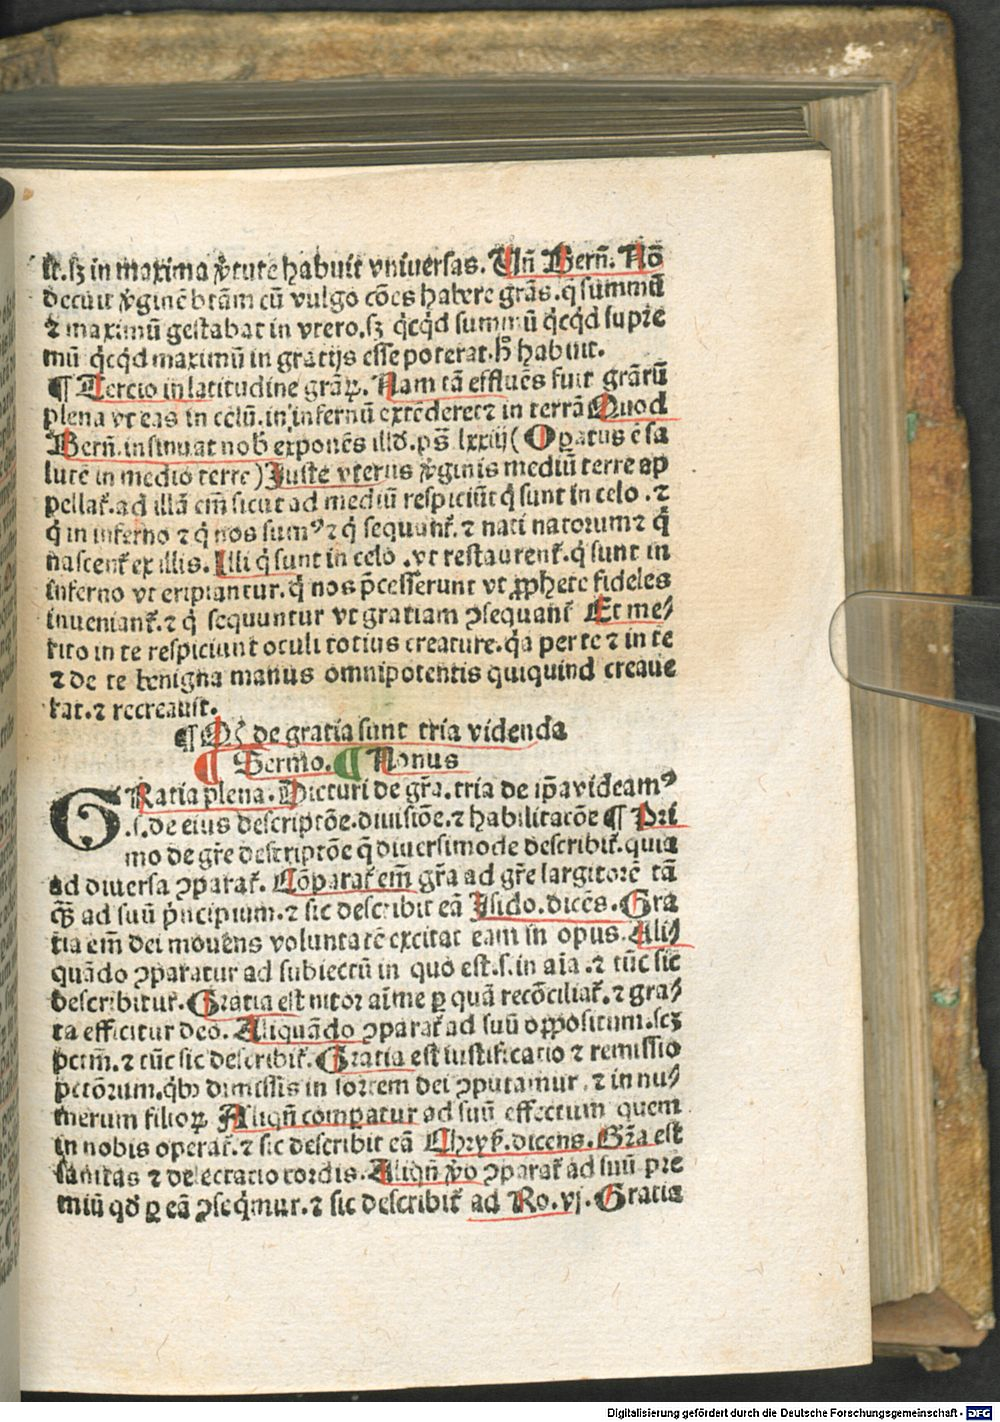 lt.sꝫ in maxima v̕tute habuit vniuersas. Vñ Berñ. Nō
decuit v̕ginē btām cū vulgo cōes habere grās. q̇ summū
⁊ maximū gestabat in vtero. sꝫ q̇cq̇d summū q̇cq̇d supre
mū q̇cq̇d maximū in gratijs esse poterat. h̄ habuit.
¶ Tercio in latitudine grāꝝ. Nam tā effluēs fuit grārū
plena vt eas in celū. in infernū extēderet ⁊ in terrā Quod
Berñ. insinuat nob̕ exponēs illđ. ps̄ lxxiij (Oꝑatus ē sa
lutē in medio terre) Juste vterus v̕ginis mediū terre ap
pellaꝶ. ad illā em̄ sicut ad mediū respiciūt q̇ sunt in celo. ⁊
q̇ in inferno ⁊ q̇ nos sumꝰ ⁊ q̇ sequunꝶ. ⁊ nati natorum ⁊ q̇
nascenꝶ ex illis. Illi q̇ sunt in celo. vt restaurenꝶ. q̇ sunt in
inferno vt eripiantur. q̇ nos p̄cesserunt vt ꝓphete fideles
inuenianꝶ. ⁊ q̇ sequuntur vt gratiam ꝯsequanꝶ Et me⸗
rito in te respiciunt oculi totius creature. q̇a per te ⁊ in te
⁊ de te benigna manus omnipotentis quiquind creaue
rat. ⁊ recreauit.
¶ Qꝫ de gratia sunt tria videnda
¶ Sermo. ¶ Nonus
GRatia plena. Dicturi de gr̄a. tria de ip̄a videamꝰ
.s. de eius descriptōe. diuisiōe. ⁊ habilitatōe ¶ Pri
mo de gr̄e descriptōe q̄ diuersimode describiꝶ. quia
ad diuersa ꝯparaꝶ. Cōparaꝶ em̄ gr̄a ad gr̄e largitorē tā
q̄ꝫ ad suū p̕ncipium. ⁊ sic describit eā Isido. dicēs. Gra
tia em̄ dei mouens voluntatē excitat eam in opus. Ali⸗
quādo ꝯparatur ad subiectū in quo est. s. in aīa. ⁊ tūc sic
describitur. Gratia est nitor aīme ꝑ quā recōciliaꝶ. ⁊ gra⸗
ta efficitur deo. Aliquādo ꝯparaꝶ ad suū oppositum. scꝫ
pctm̄. ⁊ tūc sic describiꝶ. Gratia est iustificatio ⁊ remissio
pctōrum. q̇bꝫ dimissis in sortem dei ꝯputamur. ⁊ in nu⸗
merum filioꝝ. Aliqñ comparatur ad suū effectum quem
in nobis operaꝶ. ⁊ sic describit eā Chryꝭ. dicens. Gr̄a est
sanitas ⁊ delectatio cordis. Aliqñ v̕o ꝯparaꝶ ad suū pre
miū qđ ꝑ eā ꝯseq̇mur. ⁊ sic describiꝶ ad Ro. vj. Gratia
Digitalisierung gefördert durch die Deutsche Forschungsgemeinschaft - DFG